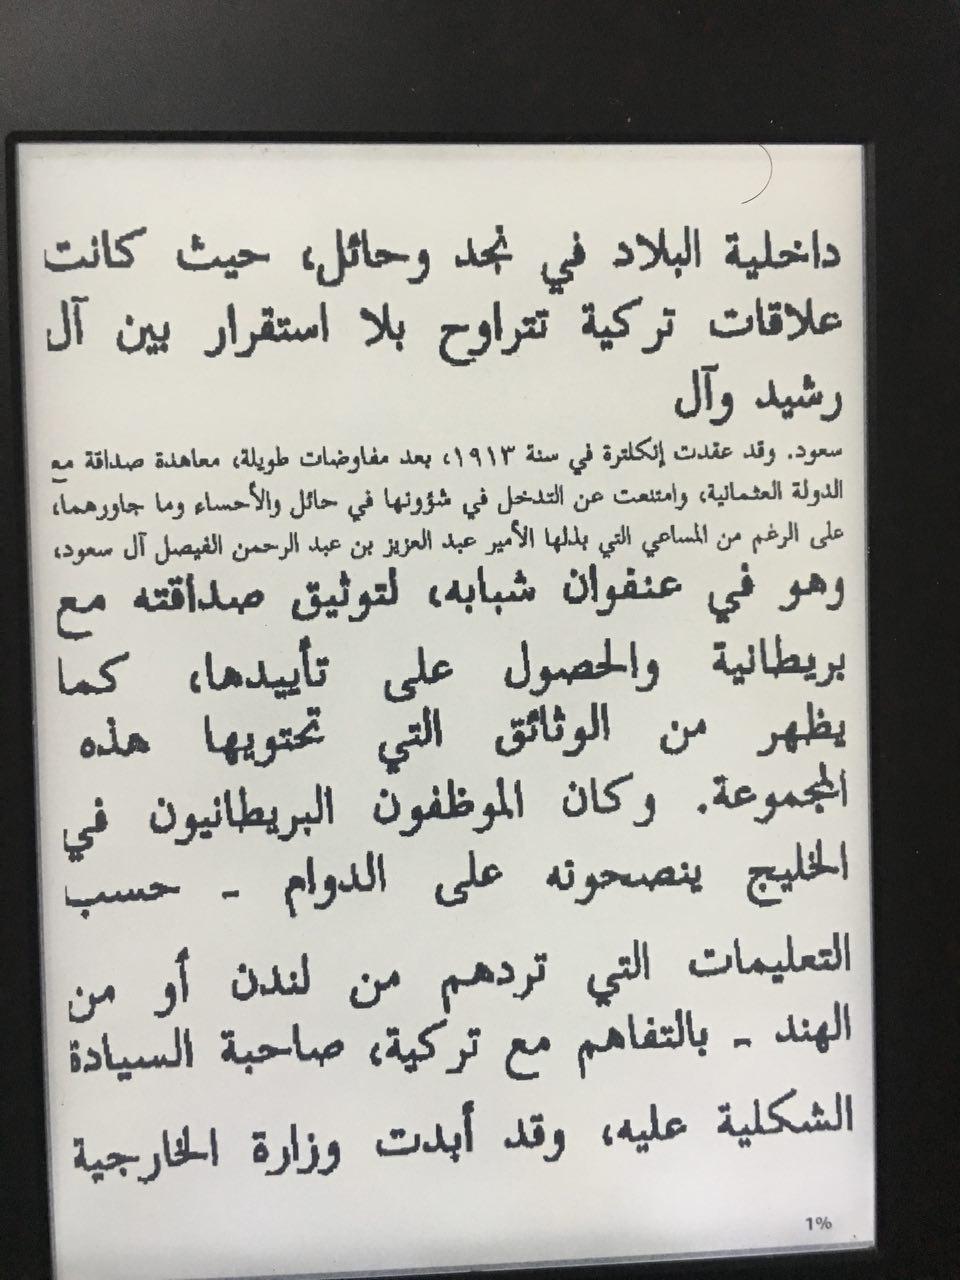 داخلية البلاد في نجد وحائل، حيث كانت
علاقات تركية تتراوح بلا استقرار بين آل
رشيد وآل
سعود. وقد عقدت إنكلترة في سنة ١٩١٣، بعد مفاوضات طويلة، معاهدة صداقة مع
الدولة العثمانية، وامتنعت عن التدخل في شؤونها في حائل والأحساء وما جاورهما،
على الرغم من المساعي التي بذلها الأمير عبد العزيز بن عبد الرحمن الفيصل آل سعود،
وهو في عنفوان شبابه، لتوثيق صداقته مع
بريطانية والحصول على تأييدها، كما
يظهر من الوثائق التي تحتويها هذه
المجموعة. وكان الموظفون البريطانيون في
الخليج ينصحونه على الدوام - حسب
التعليمات التي تردهم من لندن أو من
الهند - بالتفاهم مع تركية، صاحبة السيادة
الشكلية عليه، وقد أبدت وزارة الخارجية
1%